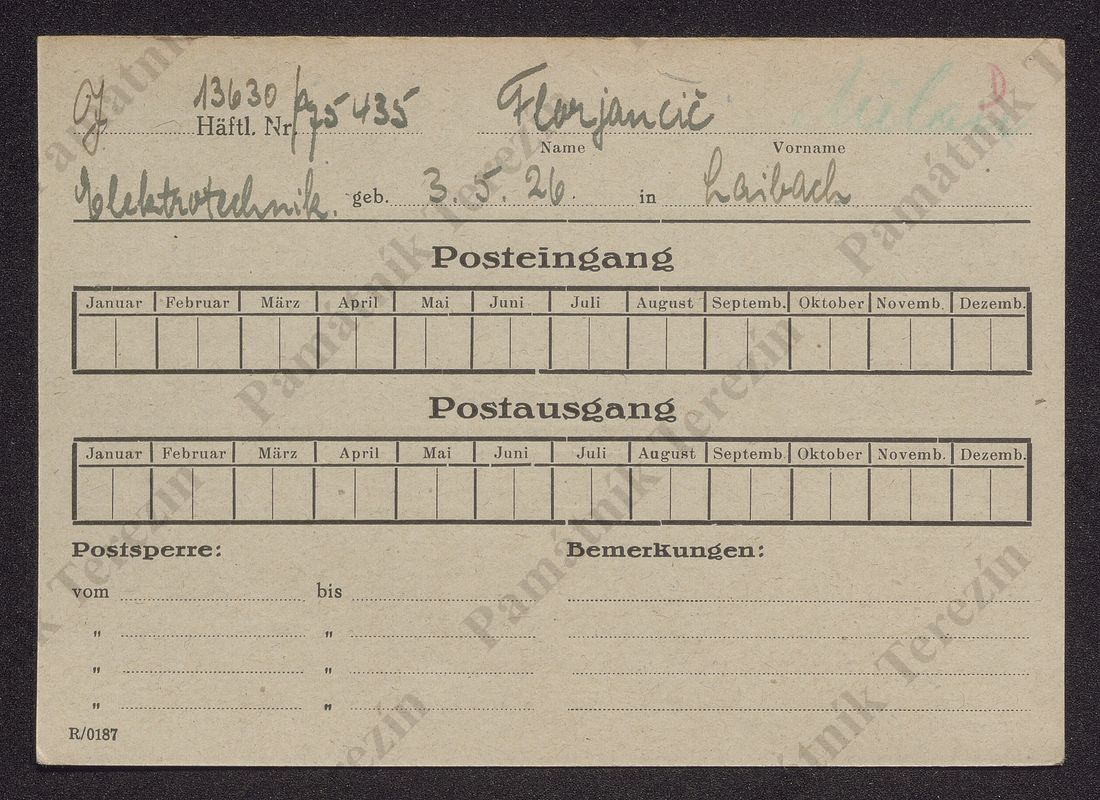 13630/75435 Florjancič Milan D
Häftl. Nr. Name Vorname
Elektrotechnik. geb. 3. 5. 26. in Laibach
Posteingang
Januar Februar März April Mai Juni Juli August Septemb. Oktober Novemb. Dezemb.
Postausgang
Januar Februar März April Mai Juni Juli August Septemb. Oktober Novemb. Dezemb.
Postsperre: Bemerkungen:
vom bis
" "
" "
" "
R/0187
Památník Terezín